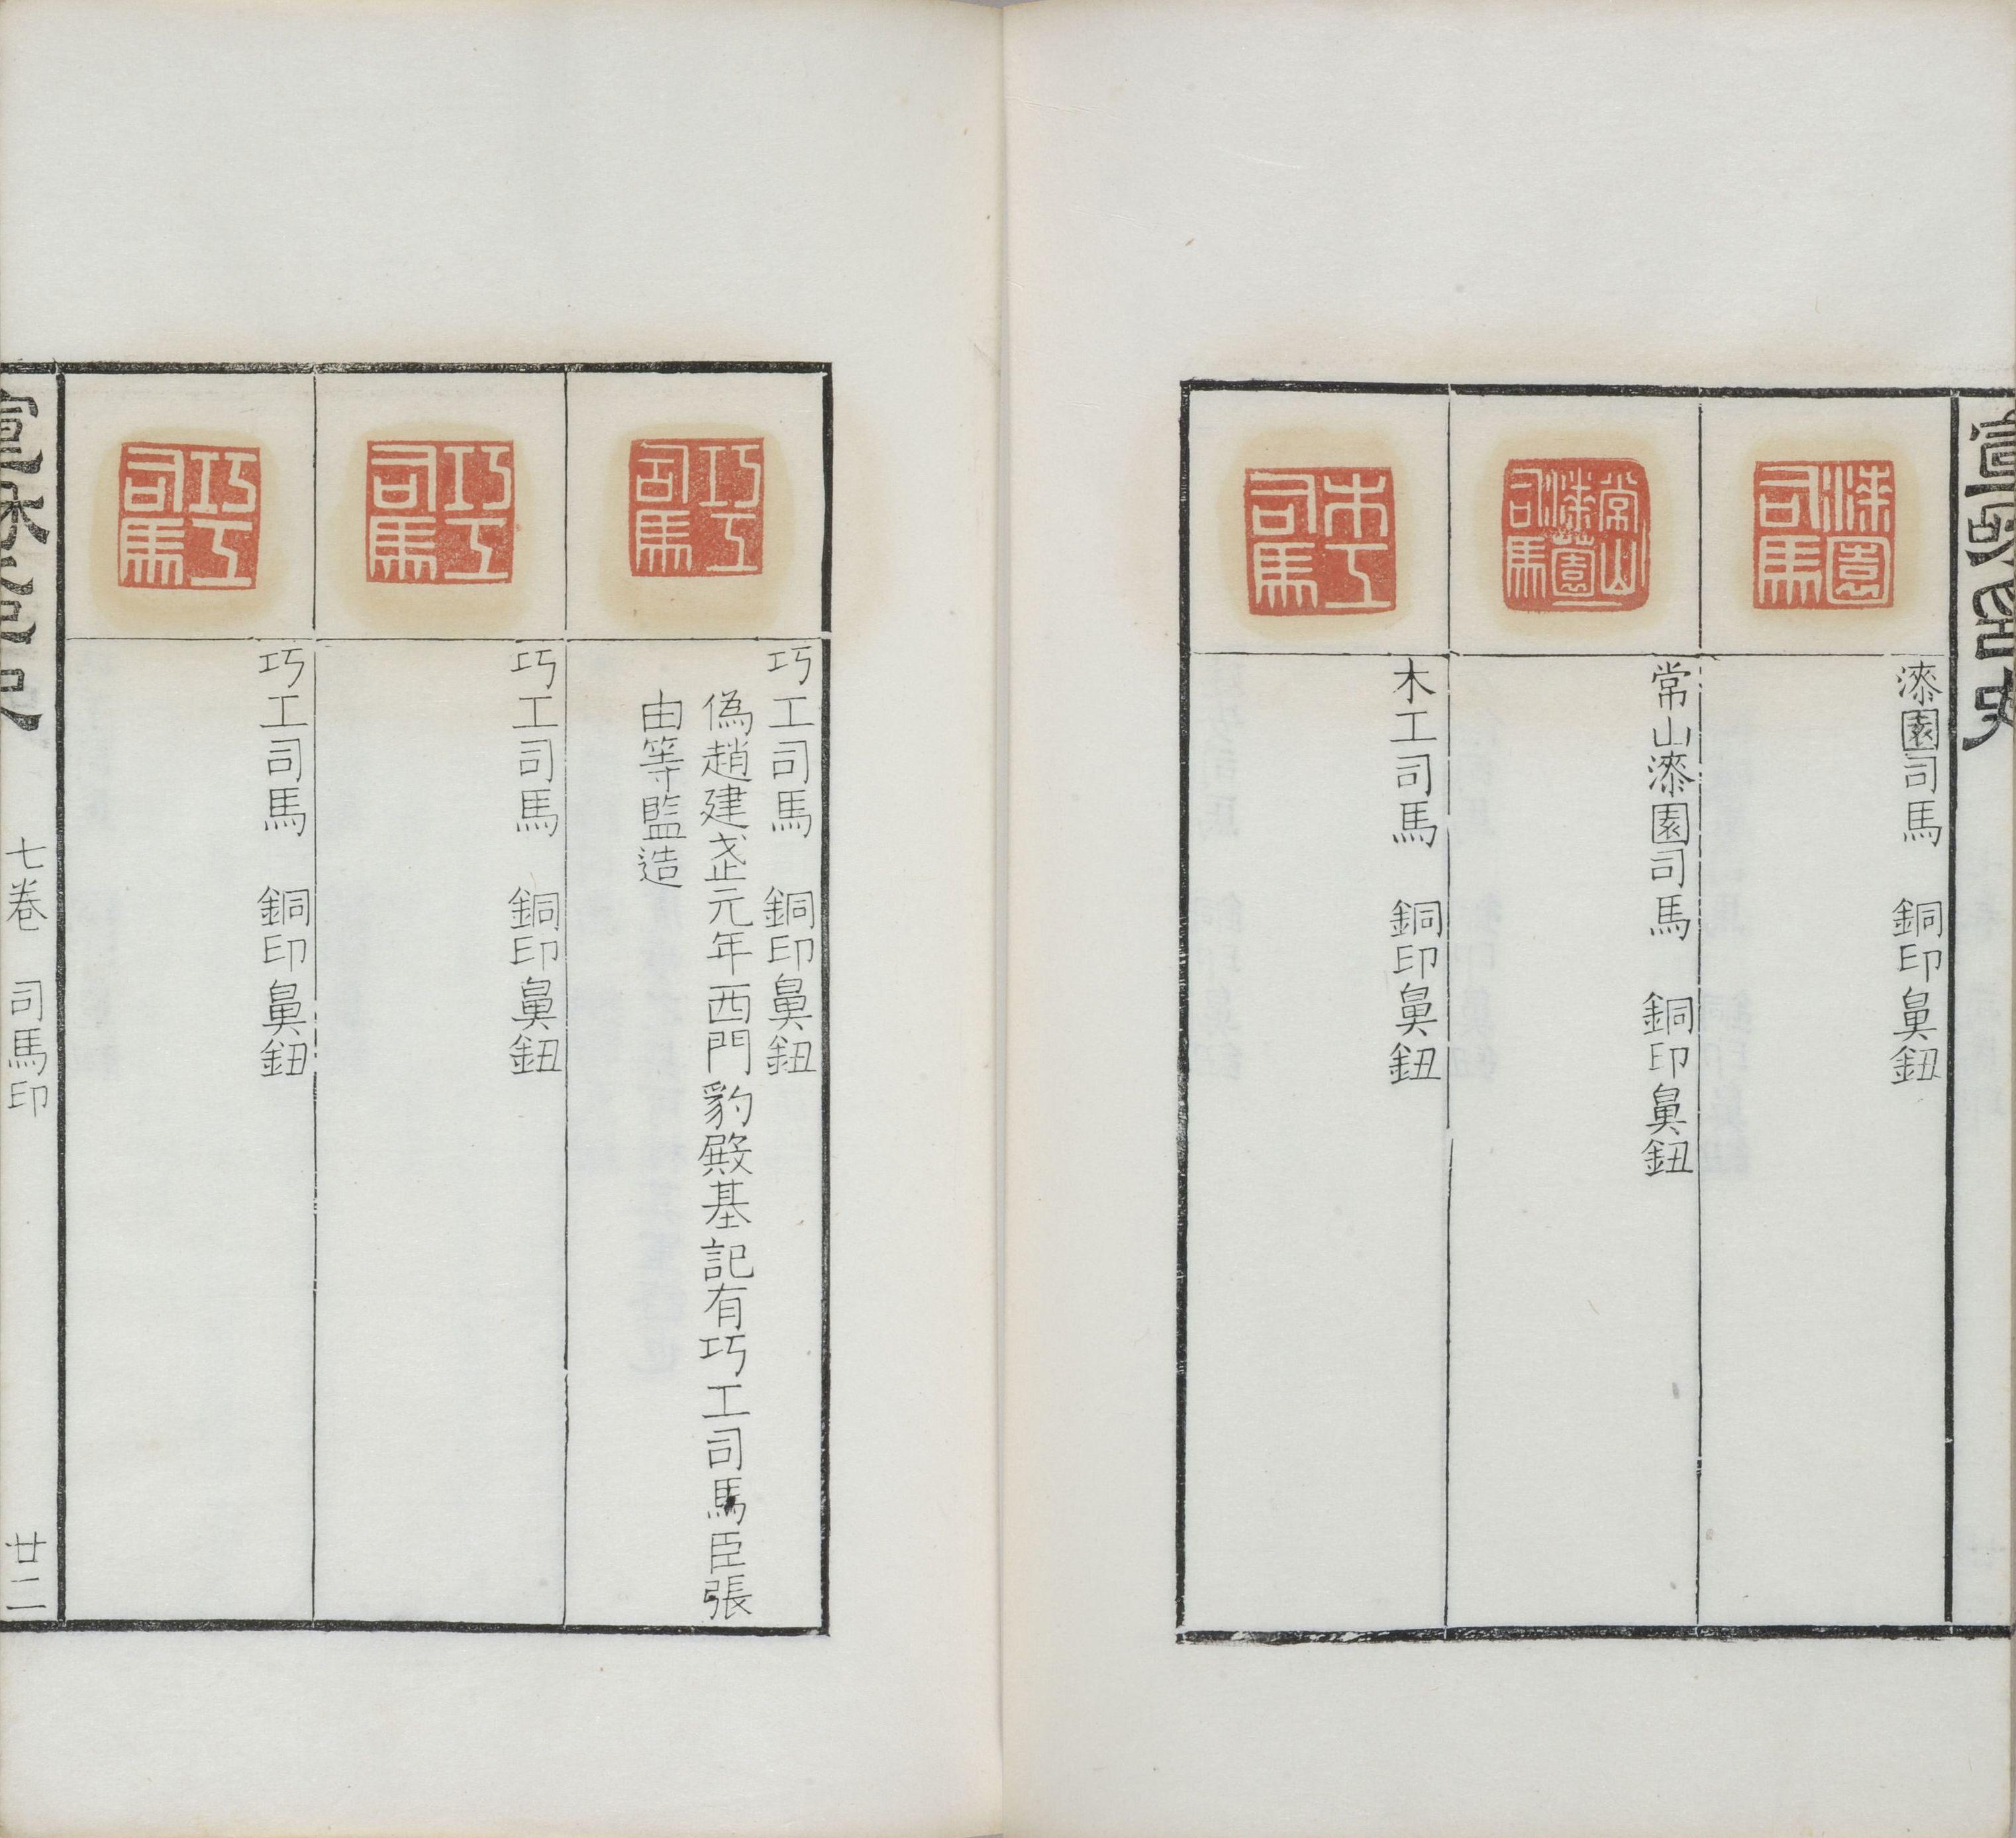 漆園司馬
漆園司馬　銅印鼻鈕
常山漆園司馬
常山漆園司馬　銅印鼻鈕
木工司馬
木工司馬　銅印鼻鈕
巧工司馬
巧工司馬　銅印鼻鈕
偽趙建武元年西門豹殿基記有巧工司馬臣張
由等監造
巧工司馬
巧工司馬　銅印鼻鈕
巧工司馬
巧工司馬　銅印鼻鈕
七卷　司馬印　廿二